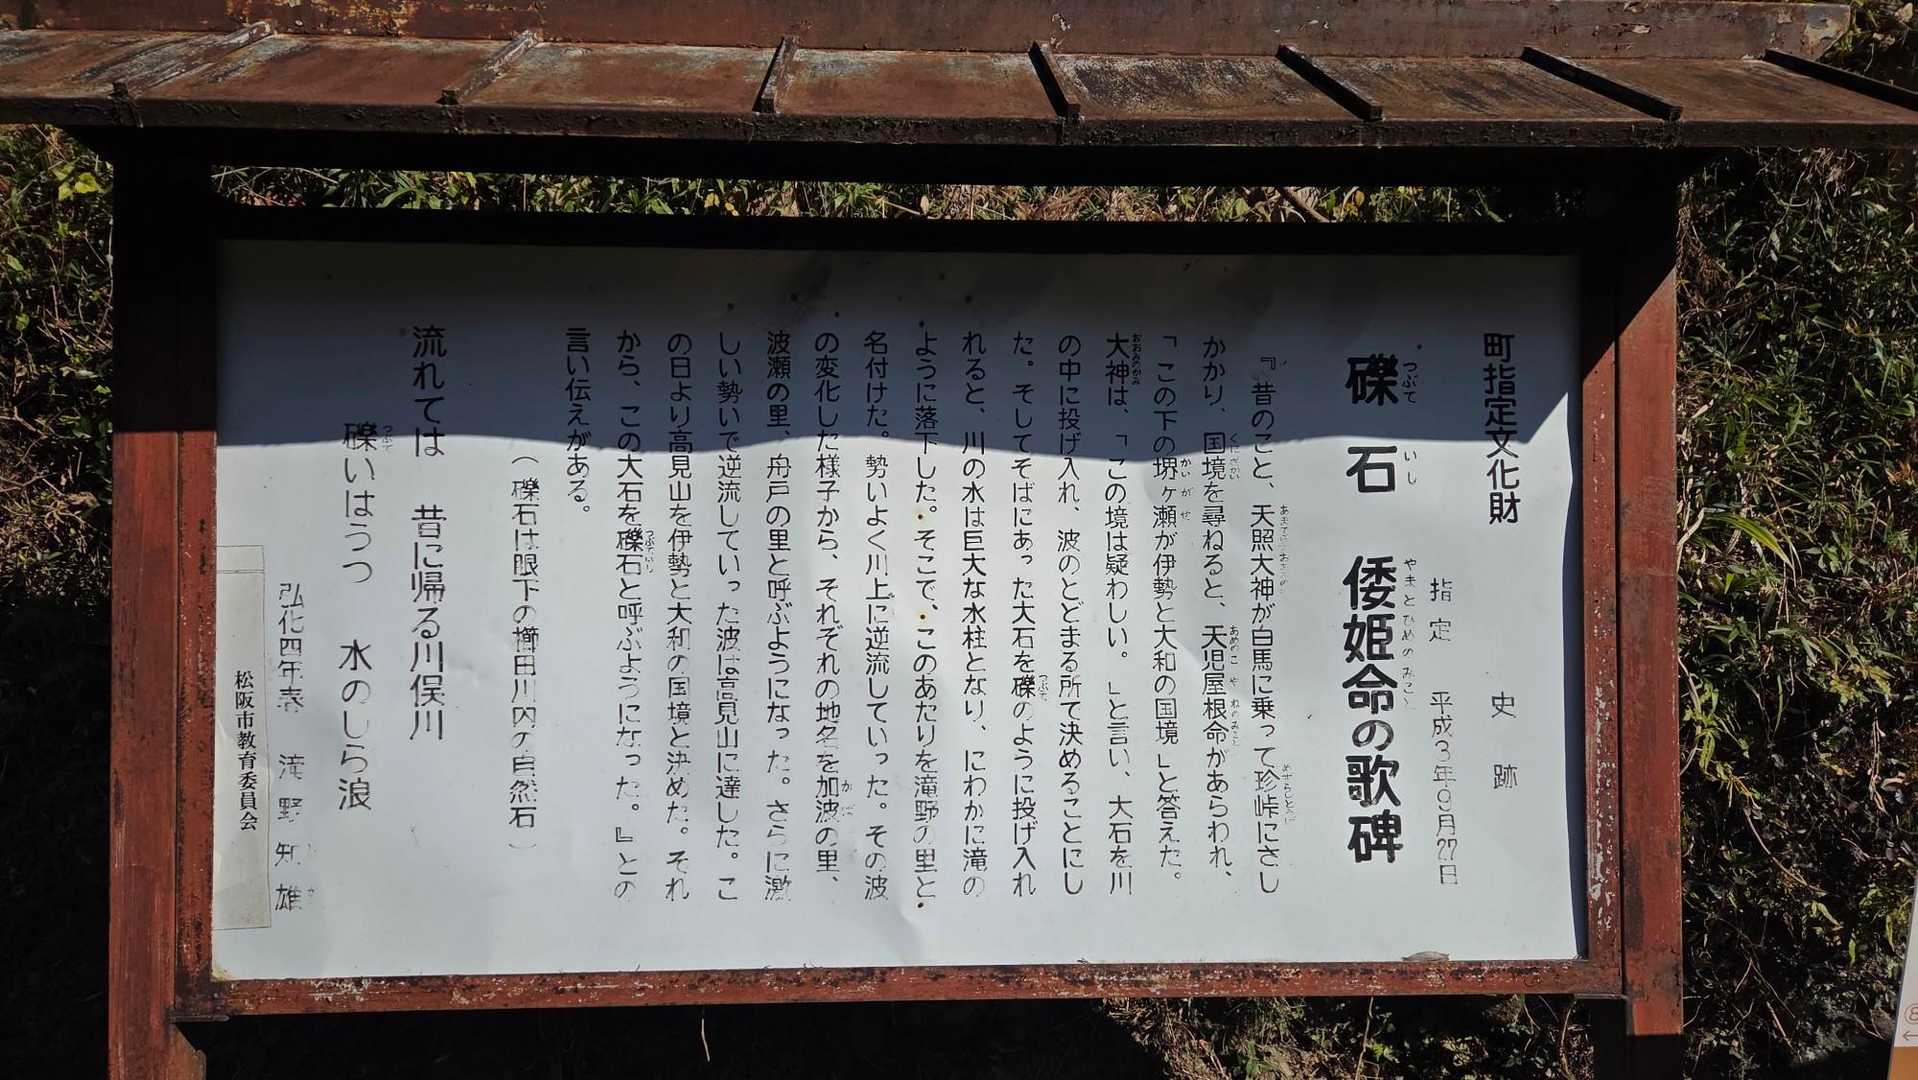 町指定文化財
史跡
指定 平成3年9月27日
礫石 倭姫命の歌碑
つぶて いし やまとひめのみこと
『昔のこと、天照大神が白馬に乗って珍峠にさし
かかり、国境を尋ねると、天児屋根命があらわれ、
「この下の堺ヶ瀬が伊勢と大和の国境」と答えた。
大神は、「この境は疑わしい。」と言い、大石を川
の中に投げ入れ、波のとどまる所で決めることにし
た。そしてそばにあった大石を礫のように投げ入れ
れると、川の水は巨大な水柱となり、にわかに滝の
ように落下した。そこで、このあたりを滝野の里と
名付けた。勢いよく川上に逆流していった。その波
の変化した様子から、それぞれの地名を加波の里、
波瀬の里、舟戸の里と呼ぶようになった。さらに激
しい勢いで逆流していった波は高見山に達した。こ
の日より高見山を伊勢と大和の国境と決めた。それ
から、この大石を礫石と呼ぶようになった。』との
言い伝えがある。
（礫石は眼下の櫛田川内の自然石）
流れては 昔に帰る川俣川
礫いはうつ 水のしら浪
弘化四年春 滝野知雄
松阪市教育委員会